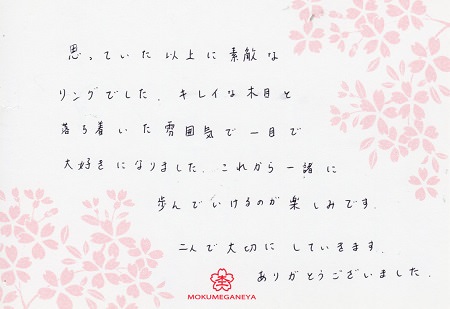 思っていた以上に素敵な
リングでした。キレイな木目と
落ち着いた雰囲気で一目で
大好きになりました。これから一諸に
歩んでいけるのが楽しみです。
二人で大切にしていきます。
ありがとうございました。
MOKUMEGANEYA